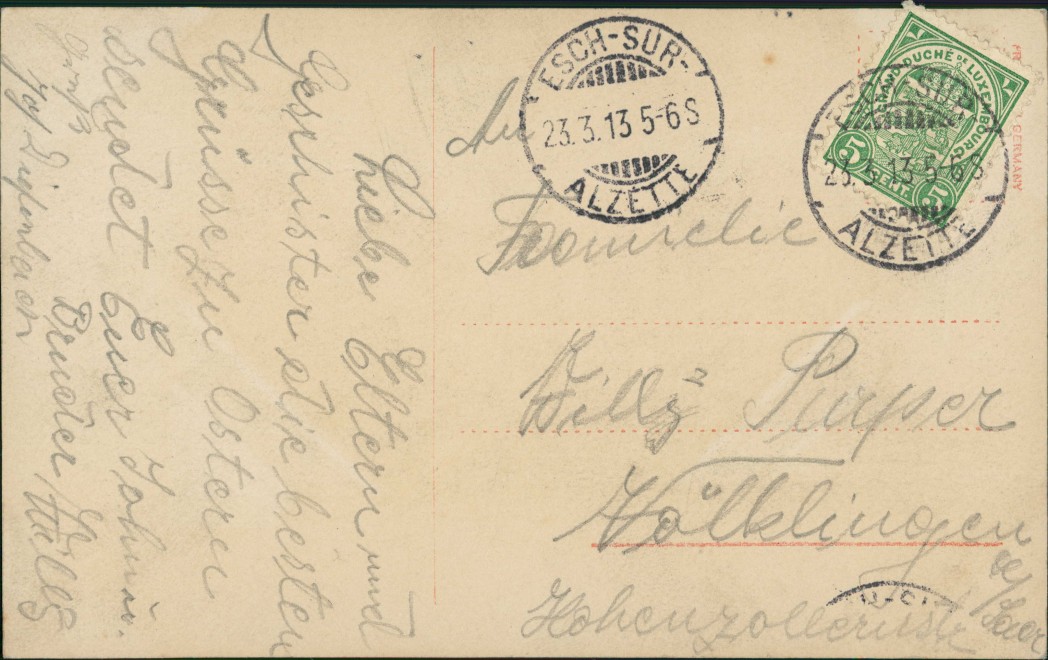 Liebe Eltern und
Geschwister die besten
Grüsse zu Ostern
sendet Euer Sohn u.
Bruder Willy
Gruß
An
Familie
Willy Purper
Völklingen
a/Saar
Hohenzollernstr
ESCH-SUR-
23.3.13 5-6S
ALZETTE
GRAND-DUCHÉ DE LUXEMBOURG
5 CENT. 5
ESCH-SUR-
23.3.13 5-6S
ALZETTE
GERMANY